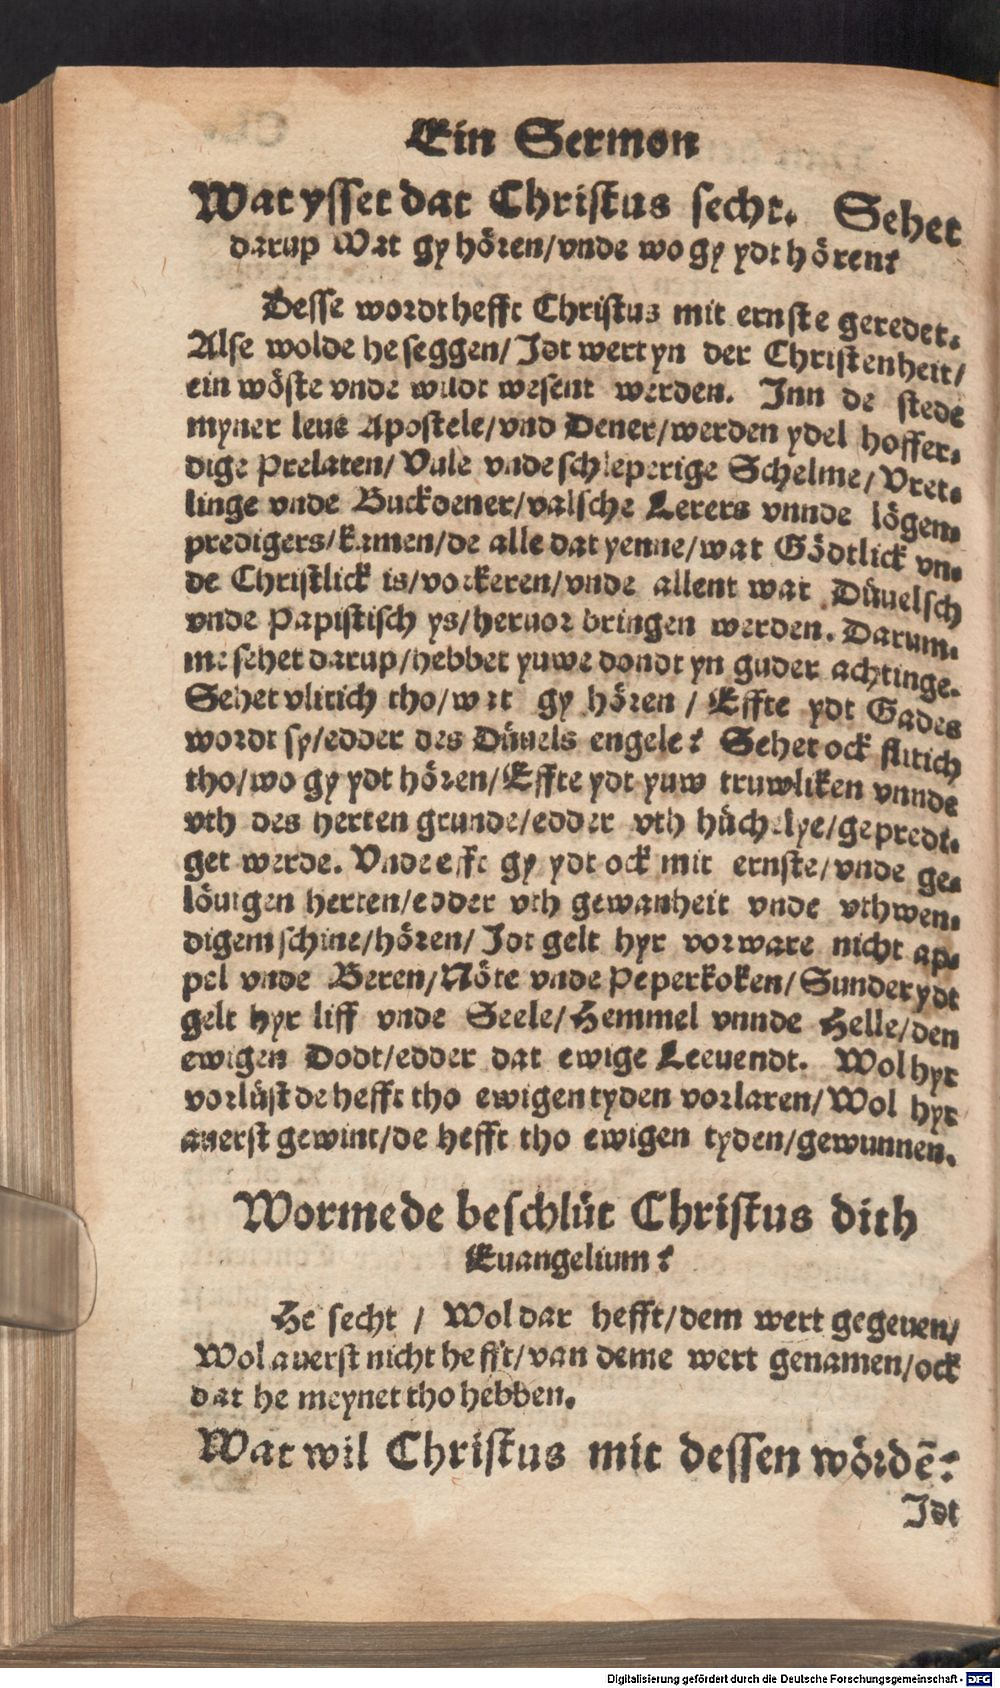 Ein Sermon
Wat ysset dat Christus secht. Sehet
darup Wat gy hören/vnde wo gy ydt hören?
Desse wordt hefft Christus mit ernste geredet.
Alse wolde he seggen/Jdt wert yn der Christenheit/
ein wöste vnde wildt wesent werden. Inn de stede
myner leue Apostele/vnd Dener/werden ydel hoffer-
dige Prelaten/Vule vnde schleperige Schelme/Vret-
linge vnde Buckdener/valsche Lerers vnnde lögen-
predigers/kamen/de alle dat yenne/wat Gödtlick vn-
de Christlick is/vorkeren/vnde allent wat Düuelsch
vnde Papistisch ys/heruor bringen werden. Darum-
me sehet darup/hebbet yuwe dondt yn guder achtinge.
Sehet vlitich tho/wat gy hören / Effte ydt Gades
wordt sy/edder des Düuels engele? Sehet ock flitich
tho/wo gy ydt hören/Effte ydt yuw truwliken vnnde
vth des herten grunde/edder vth hüchelye/gepredi-
get werde. Vnde efft gy ydt ock mit ernste/vnde ge-
löuigen herten/edder vth gewanheit vnde vthwen-
digem schine/hören/Jdt gelt hyr vorware nicht ap-
pel vnde Beren/Nöte vnde Peperkoken/Sunder ydt
gelt hyr liff vnde Seele/Hemmel vnnde Helle/den
ewigen Dodt/edder dat ewige Leeuendt. Wol hyr
vorlüst de hefft tho ewigen tyden vorlaren/Wol hyr
auerst gewint/de hefft tho ewigen tyden/gewunnen.
Wormede beschlüt Christus dith
Euangelium?
He secht / Wol dar hefft/dem wert gegeuen/
Wol auerst nicht hefft/van deme wert genamen/ock
dat he meynet tho hebben.
Wat wil Christus mit dessen wördē?
Jdt
Digitalisierung gefördert durch die Deutsche Forschungsgemeinschaft - DFG